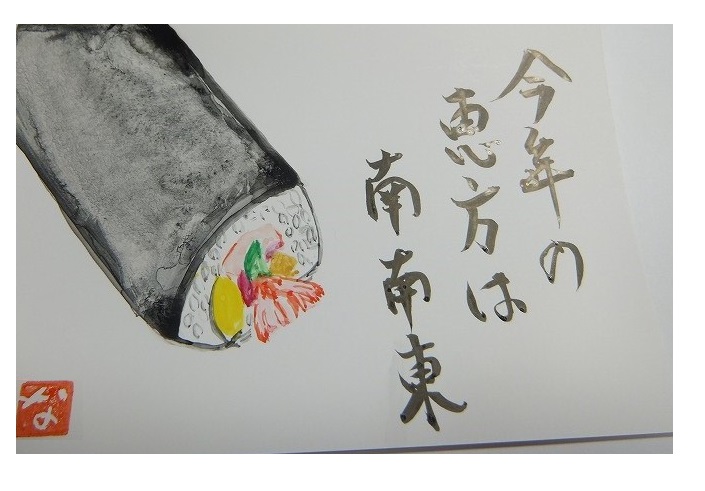 今年の
恵方は
南南東
な